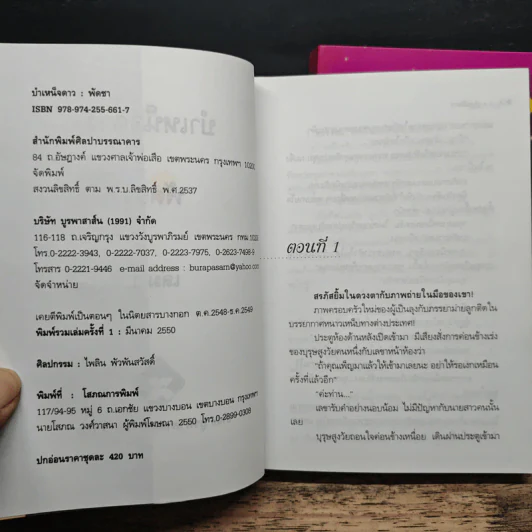 บำเหน็จดาว : พัดชา
ISBN 978-974-255-661-7
สำนักพิมพ์ศิลปาบรรณาคาร
84 ถ.อัษฎางค์ แขวงศาลเจ้าพ่อเสือ เขตพระนคร กรุงเทพฯ 10200
จัดพิมพ์
สงวนลิขสิทธิ์ ตาม พ.ร.บ.ลิขสิทธิ์ พ.ศ.2537
บริษัท บูรพาสาส์น (1991) จำกัด
116-118 ถ.เจริญกรุง แขวงวังบูรพาภิรมย์ เขตพระนคร กทม.
โทร.0-2222-3943, 0-2222-7037, 0-2223-7975, 0-2623-7498-9
โทรสาร 0-2221-9446 e-mail address : burapasarn@yahoo.com
จัดจำหน่าย
เคยตีพิมพ์เป็นตอนๆ ในนิตยสารบางกอก ต.ค.2548-ธ.ค.2549
พิมพ์รวมเล่มครั้งที่ 1 : มีนาคม 2550
ศิลปกรรม : ไพลิน พัวพันสวัสดิ์
พิมพ์ที่ : โสภณการพิมพ์
117/94-95 หมู่ 6 ถ.เอกชัย แขวงบางบอน เขตบางบอน กรุงเทพฯ
นายโสภณ วงศ์วาสนา ผู้พิมพ์โฆษณา 2550 โทร.0-2899-0308
ปกอ่อนราคาชุดละ 420 บาท
ตอนที่ 1
สรภัสยิ้มในดวงตากับภาพถ่ายในมือของเขา!
ภาพครอบครัวใหม่ของผู้เป็นลุงกับภรรยาม่ายลูกติดใน
บรรยากาศหนาวเหน็บทางต่างประเทศ!!
ประตูห้องด้านหลังเปิดเข้ามา มีเสียงสั่งการค่อนข้างเร่ง
ของบุรุษสูงวัยคนหนึ่งกับเลขาหน้าห้องว่า
"ถ้าคุณเพ็ญมาแล้วให้เข้ามาเลยนะ อย่าให้รอนกเหมือน
ครั้งที่แล้วอีก"
"ค่ะท่าน..."
เลขารับคำอย่างนอบน้อม ไม่มีปัญหากับนายสาวคนนั้น
เลย
บุรุษสูงวัยถอนใจค่อนข้างเหนื่อย เดินผ่านประตูเข้ามา